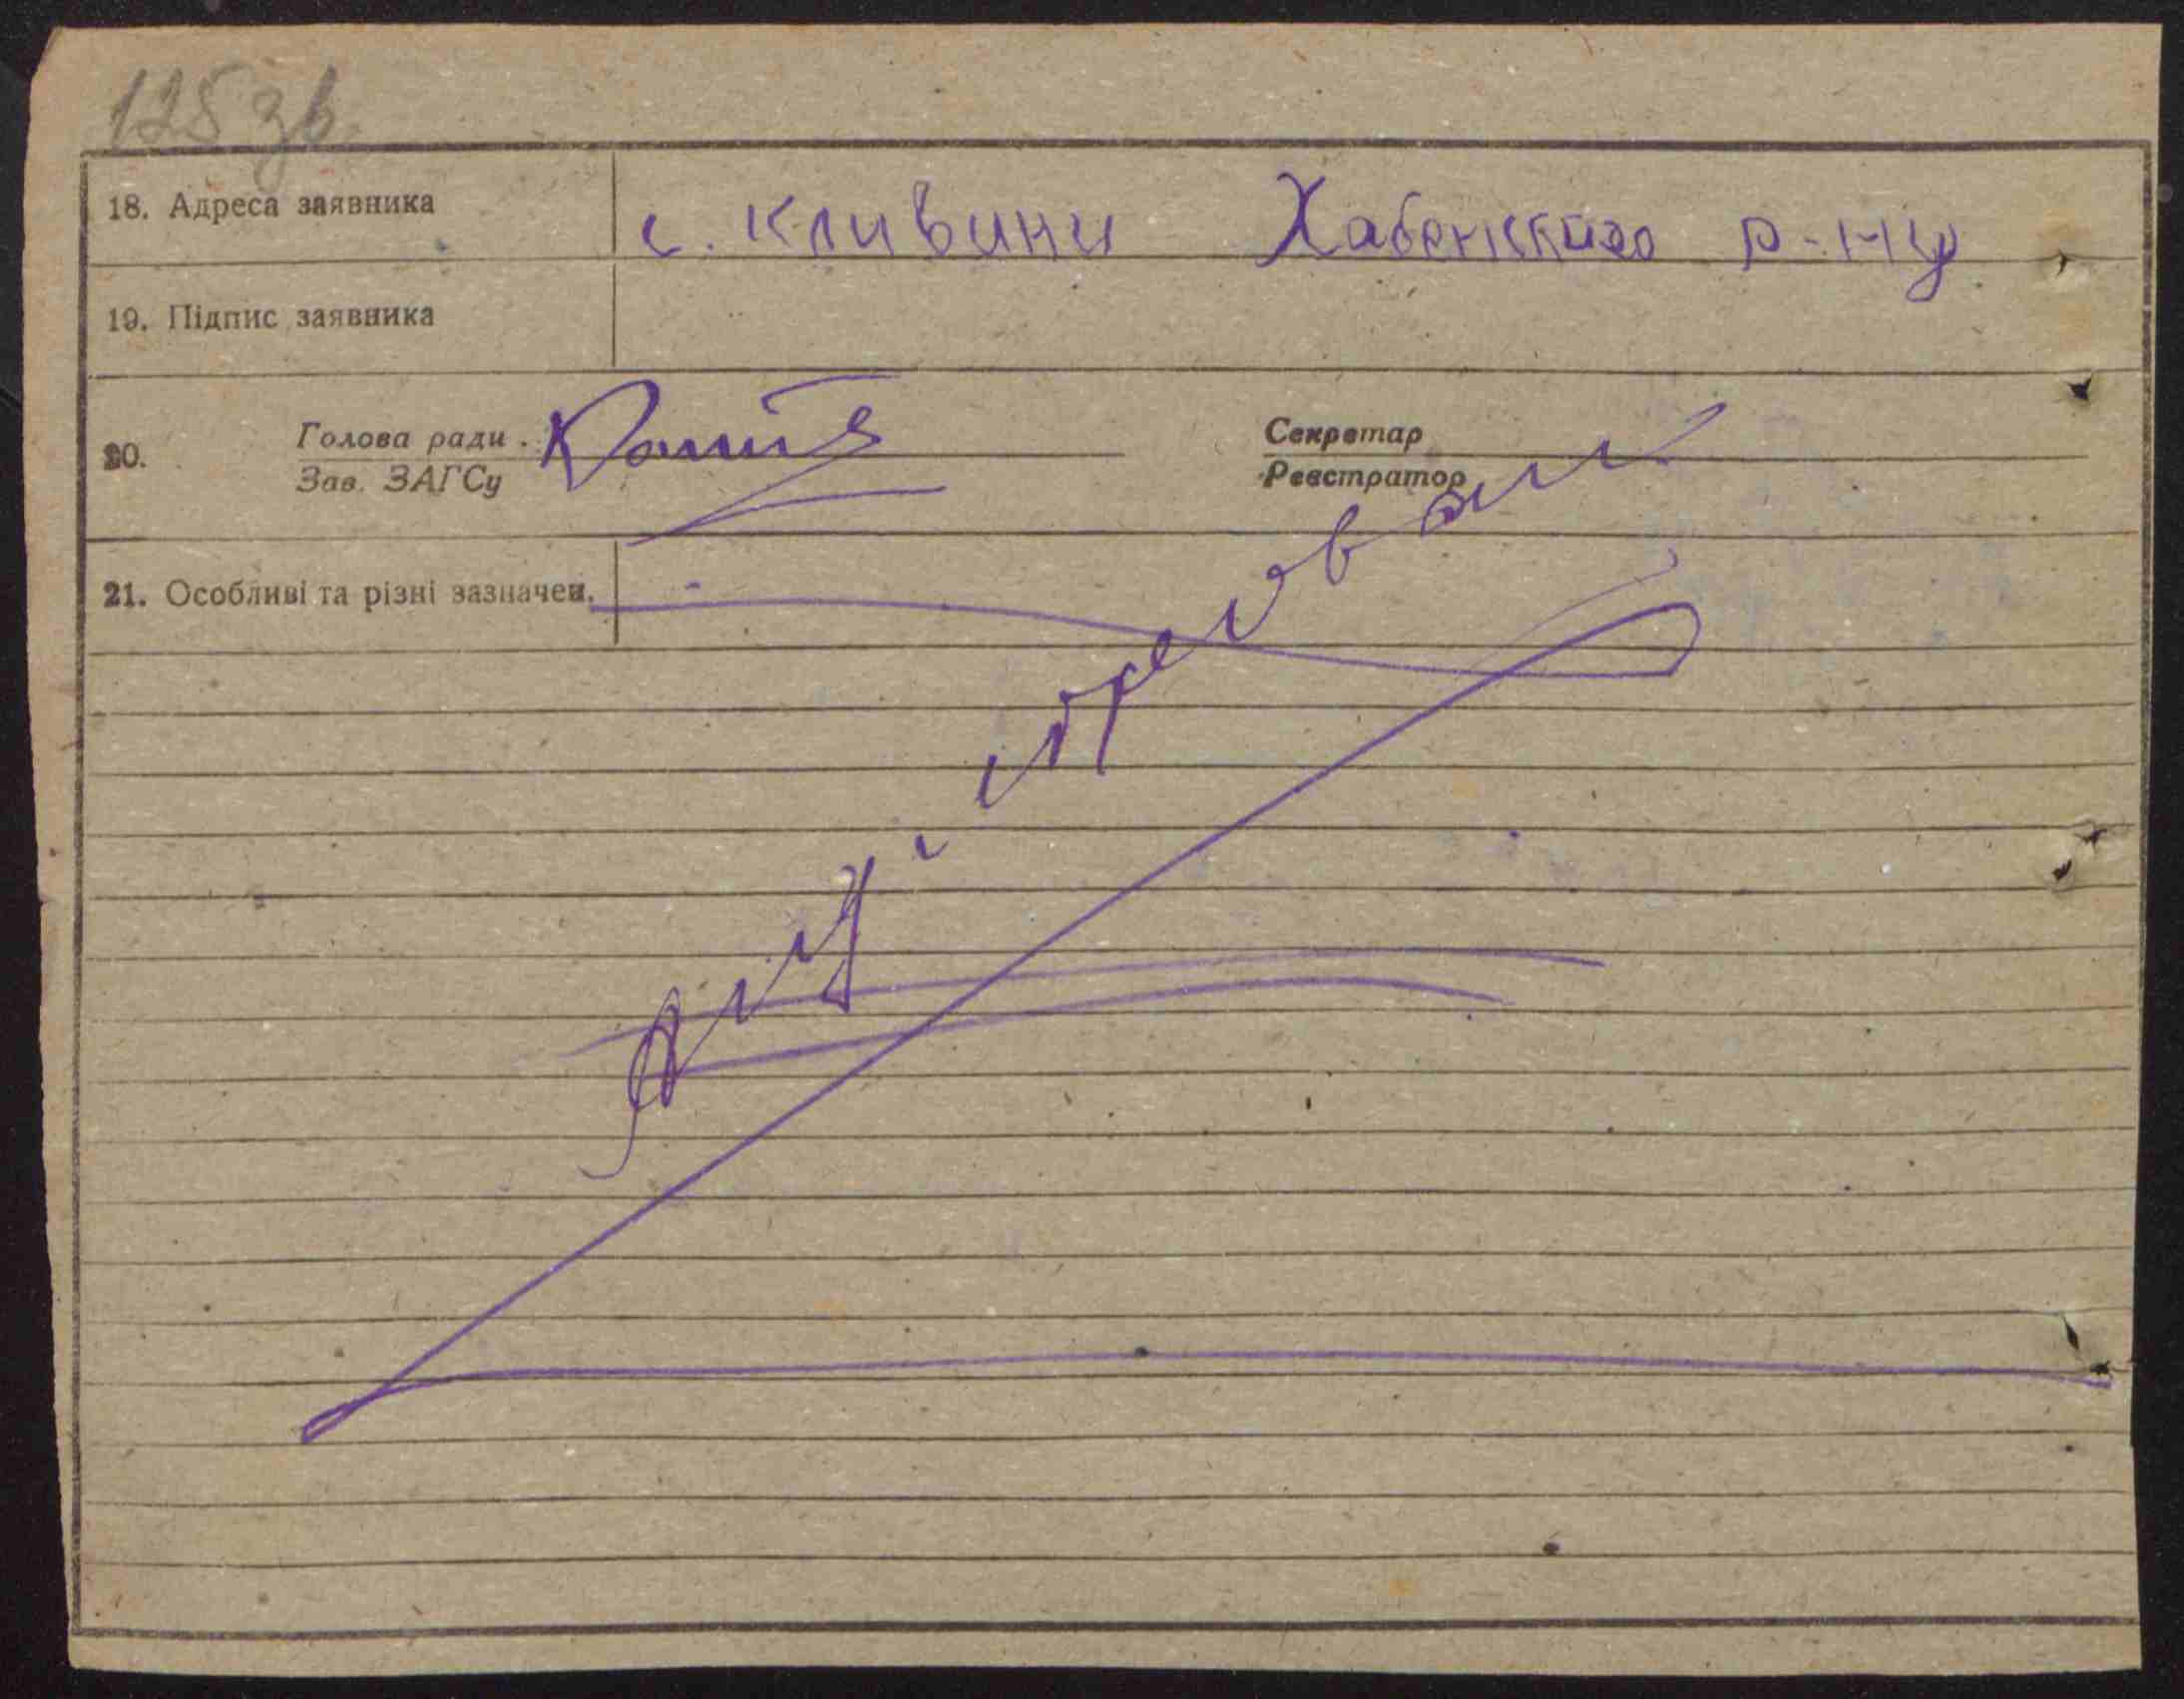 125 зв.
18. Адреса заявника с. Кливини Хабенского р-ну
19. Підпис заявника
20. Голова ради Секретар
Зав. ЗАГСу Реєстратор
21. Особливі та різні зазначен.